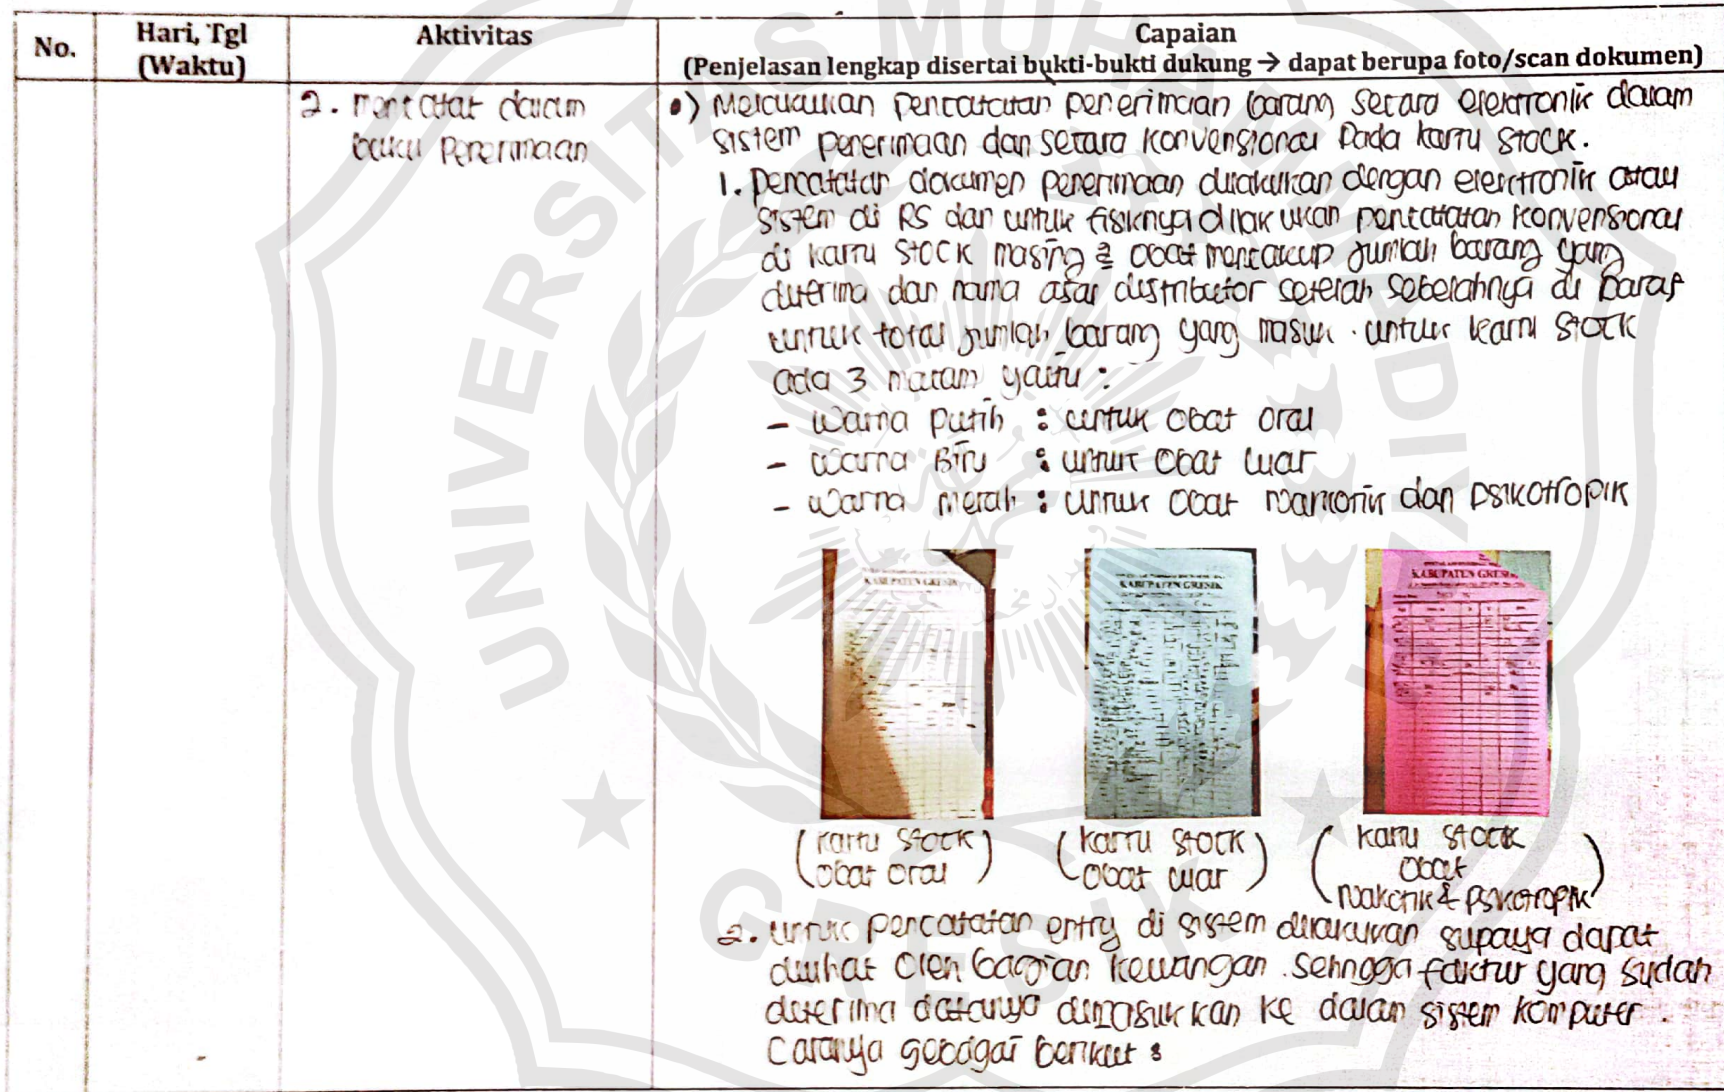 No.
Hari, Tgl
(Waktu)
Aktivitas
Capaian
(Penjelasan lengkap disertai bukti-bukti dukung → dapat berupa foto/scan dokumen)
2. Mencatat dalam
buku penerimaan
•) Melakukan pencatatan penerimaan barang secara elektronik dalam
sistem penerimaan dan secara konvensional pada kartu stock.
1. Pencatatan dokumen penerimaan dilakukan dengan elektronik atau
sistem di RS dan untuk fisiknya dilakukan pencatatan konvensional
di kartu stock masing 2 obat mencakup jumlah barang yang
diterima dan nama asal distributor setelah sebelahnya di paraf
untuk total jumlah barang yang masuk. untuk kartu stock
ada 3 macam yaitu :
- Warna putih : untuk obat oral
- Warna Biru : untuk obat luar
- Warna merah : untuk obat narkotik dan psikotropik
KABUPATEN GRESIK
KABUPATEN GRESIK
KABUPATEN GRESIK
(kartu stock
obat oral)
(kartu stock
obat luar)
(kartu stock
obat
narkotik & psikotropik)
2. Untuk pencatatan entry di sistem dilakukan supaya dapat
dilihat oleh bagian keuangan. Sehingga faktur yang sudah
diterima datanya dimasukkan ke dalam sistem komputer.
Caranya sebagai berikut :
UNIVERSITAS MUHAMMADIYAH
GRESIK